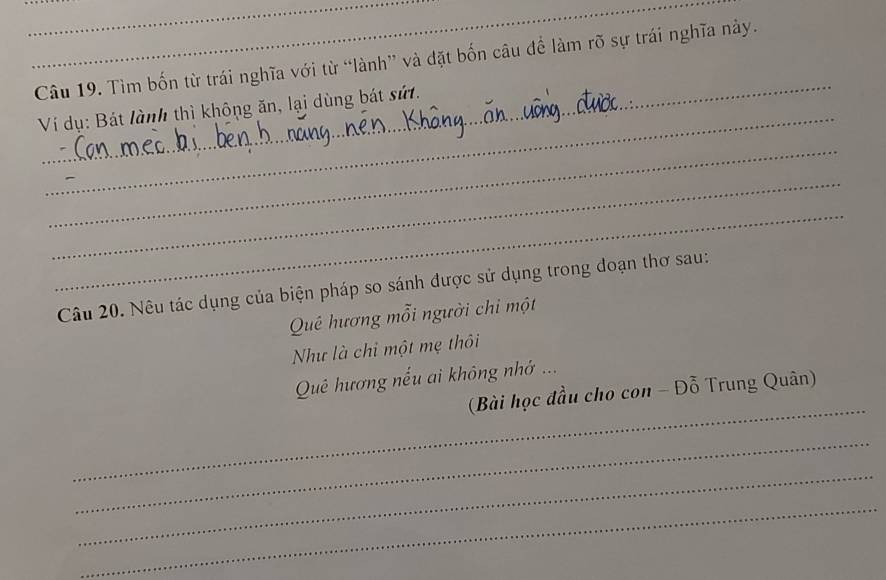 Câu 19. Tìm bốn từ trái nghĩa với từ “lành” và đặt bốn câu để làm rõ sự trái nghĩa này.
Ví dụ: Bát lành thì không ăn, lại dùng bát sứt.
- Con mèo bị bệnh nặng nên không ăn uống được.
-
Câu 20. Nêu tác dụng của biện pháp so sánh được sử dụng trong đoạn thơ sau:
Quê hương mỗi người chỉ một
Như là chỉ một mẹ thôi
Quê hương nếu ai không nhớ ...
(Bài học đầu cho con - Đỗ Trung Quân)